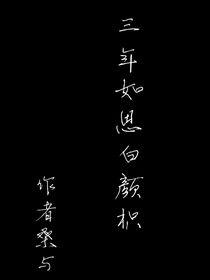 三年如思白顏枳
作者桑与